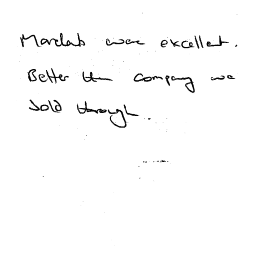 Marelab were excellent.
Better than company we
sold through.